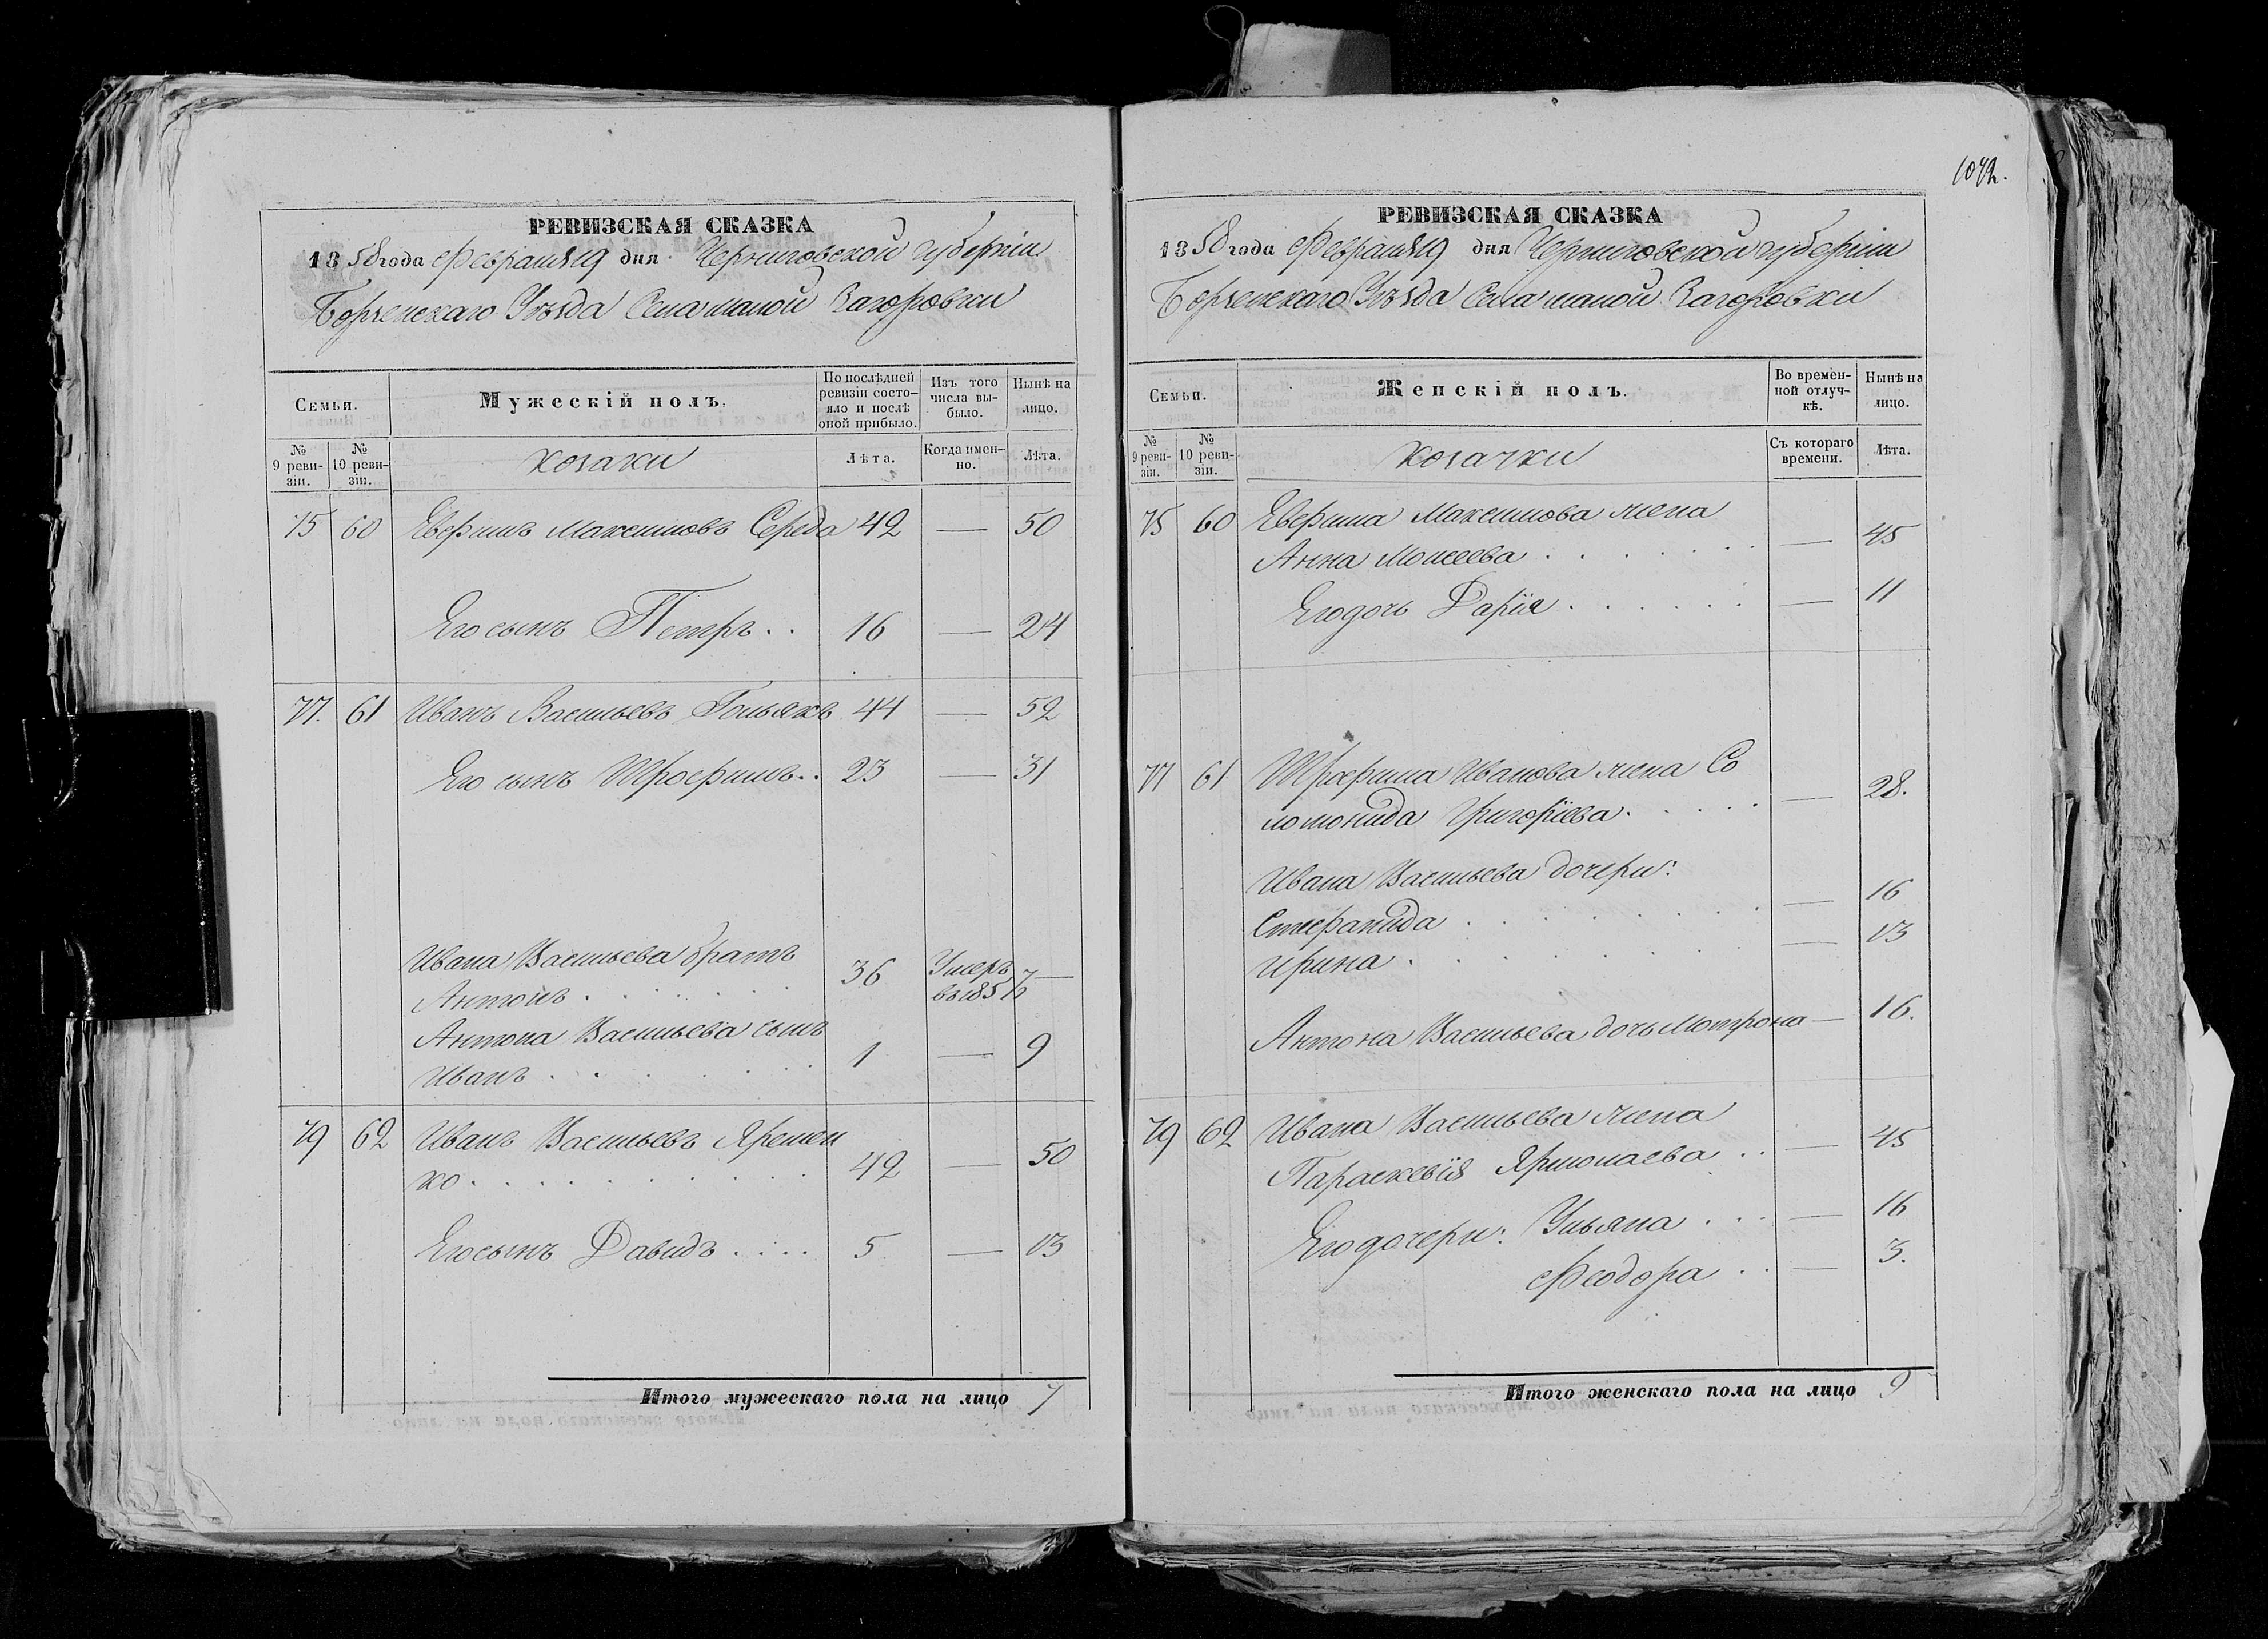 РЕВИЗСКАЯ СКАЗКА
1858 года Февраля 19 дня Черниговской губерніи
Борзенскаго Уѣзда Села малой Загоровки
Семьи.
Мужескій полъ.
По послѣдней ревизіи состояло и послѣ оной прибыло.
Изъ того числа выбыло.
Нынѣ на лицо.
№ 9 ревизіи.
№ 10 ревизіи.
козаки
Лѣта.
Когда именно.
Лѣта.
75 60 Евфимъ Максимовъ Середа 42 — 50
Его сынъ Петръ . . 16 — 24
77. 61 Иванъ Васильевъ Гольякъ 44 — 52
Его сынъ Трофимъ . . 23 — 31
Ивана Васильева братъ
Антонъ . . . . . 36 Умеръ въ 1857 —
Антона Васильева сынъ
Иванъ . . . . . . 1 — 9
79 62 Иванъ Васильевъ Яремен
ко . . . . . . . . . 42 — 50
Его сынъ Давидъ . . . . 5 — 13
Итого мужескаго пола на лицо 7
1042.
РЕВИЗСКАЯ СКАЗКА
1858 года Февраля 19 дня Черниговской губерніи
Борзенскаго Уѣзда Села малой Загоровки
Семьи.
Женскій полъ.
Во временной отлучкѣ.
Нынѣ на лицо.
№ 9 ревизіи.
№ 10 ревизіи.
козачки
Съ котораго времени.
Лѣта.
75 60 Евфима Максимова жена
Анна Моисеева . . . . . . . — 45
Его дочь Дарія . . . . . . — 11
77 61 Трофима Иванова жена Со
ломонида Григоріева . . . . . — 28.
Ивана Васильева дочери:
Стефанида . . . . . . . . — 16
Ирина . . . . . . . . — 13
Антона Васильева дочь Мотрона — 16.
79 62 Ивана Васильева жена
Параскевія Ярмолаева . . — 45
Его дочери: Ульяна . . . — 16
Феодора . . — 3.
Итого женскаго пола на лицо 9